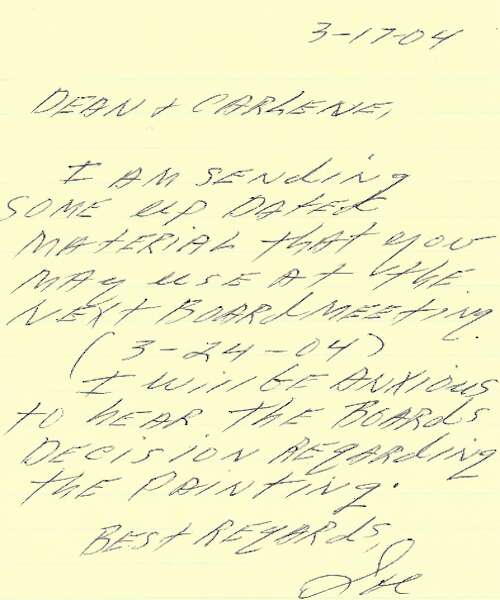 3-17-04
DEAN + CARLENE,
I AM SENDING
SOME UP DATED
MATERIAL that you
MAY USE AT the
NEXT BOARD MEETING.
(3-24-04)
I will BE ANXIOUS
to HEAR the BOARDS
DECISION REGARDING
the PAINTING.
BEST REGARDS,
Joe